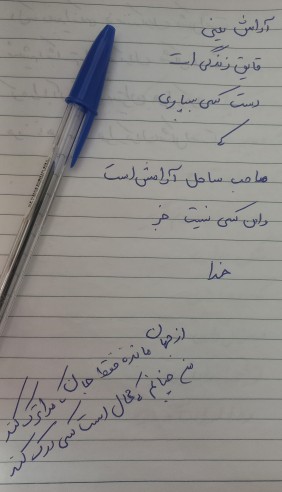 آرامش یعنی
قایق زندگی ات
دست کسی بسپاری
که
صاحب ساحل آرامش است
واین کسی نیست جز
خدا
از جهان مانده فقط جان که مرا ترک کند
من چنانم که محال است کسی درک کند